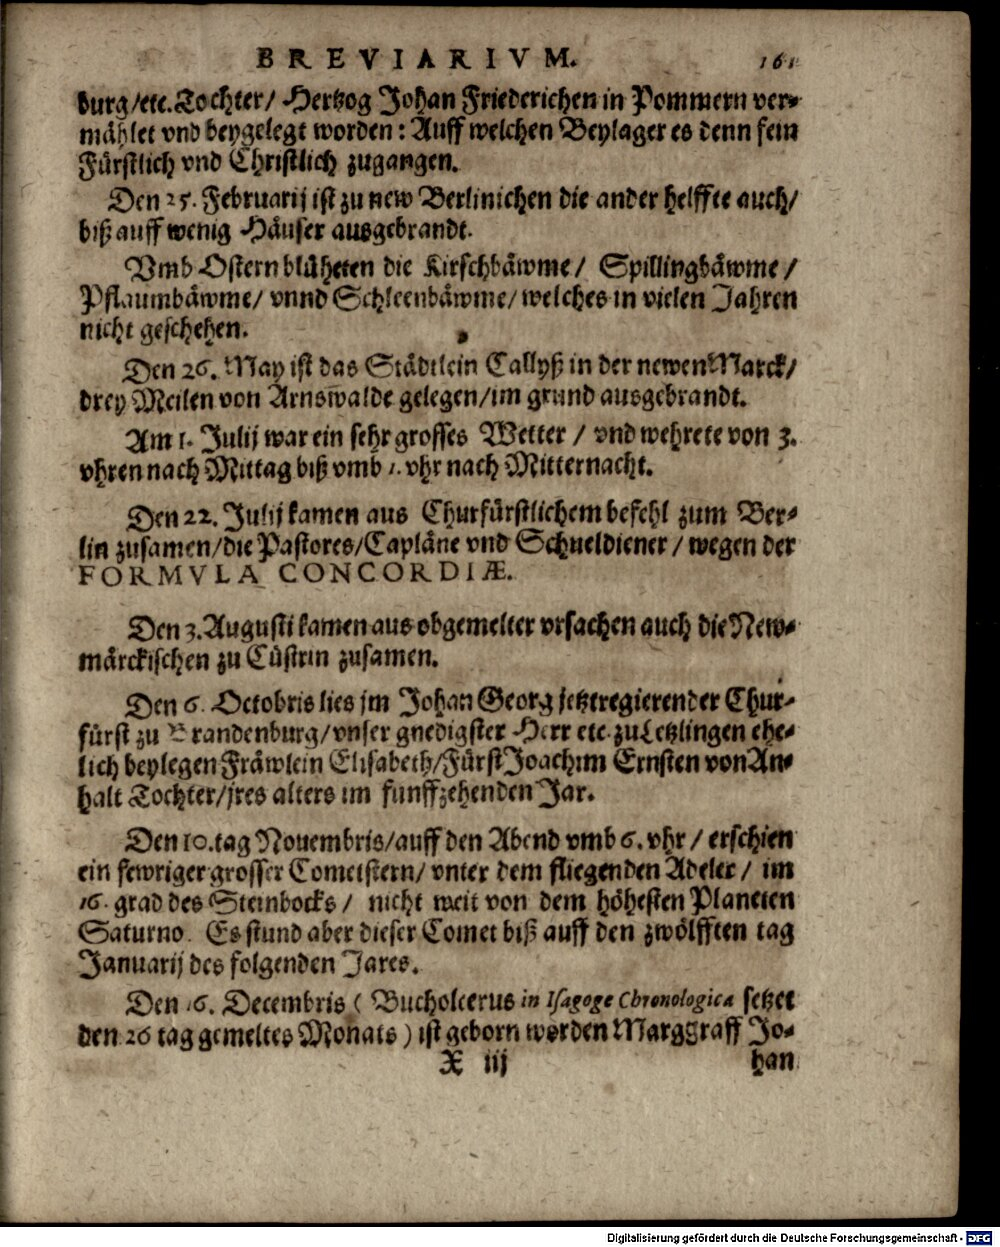 BREVIARIVM. 161
burg/etc. Tochter/ Hertzog Johan Friederichen in Pommern ver-
mählet vnd beygelegt worden: Auff welchen Beylager es denn fein
Fürstlich vnd Christlich zugangen.
Den 25. Februarij ist zu new Berlinichen die ander helffte auch/
biß auff wenig Häuser ausgebrandt.
Vmb Ostern blüheten die Kirschbäwme/ Spillingbäwme/
Pflaumbäwme/ vnnd Schleenbäwme/ welches in vielen Jahren
nicht geschehen.
Den 26. May ist das Städtlein Callyß in der newen Marck/
drey Meilen von Arnswalde gelegen/ im grund ausgebrandt.
Am 1. Julij war ein sehr grosses Wetter/ vnd wehrete von 3.
vhren nach Mittag biß vmb 1. vhr nach Mitternacht.
Den 22. Julij kamen aus Churfürstlichem befehl zum Ber-
lin zusamen/ die Pastores/ Capläne vnd Schueldiener/ wegen der
FORMVLA CONCORDIÆ.
Den 3. Augusti kamen aus obgemelter vrsachen auch die New-
märckischen zu Cüstrin zusamen.
Den 6. Octobris lies jm Johan Georg jetztregierender Chur-
fürst zu Brandenburg/ vnser gnedigster Herr etc. zu Letzlingen ehe-
lich beylegen Fräwlein Elisabeth/ Fürst Joachim Ernsten von An-
halt Tochter/ jres alters im funffzehenden Jar.
Den 10. tag Nouembris/ auff den Abend vmb 6. vhr/ erschien
ein fewriger grosser Cometstern/ vnter dem fliegenden Adeler/ im
16. grad des Steinbocks/ nicht weit von dem höhesten Planeten
Saturno. Es stund aber dieser Comet biß auff den zwölfften tag
Januarij des folgenden Jares.
Den 16. Decembris ( Bucholcerus in Isagoge Chronologica setzet
den 26 tag gemeltes Monats ) ist geborn worden Marggraff Jo-
X iij han
Digitalisierung gefördert durch die Deutsche Forschungsgemeinschaft - DFG